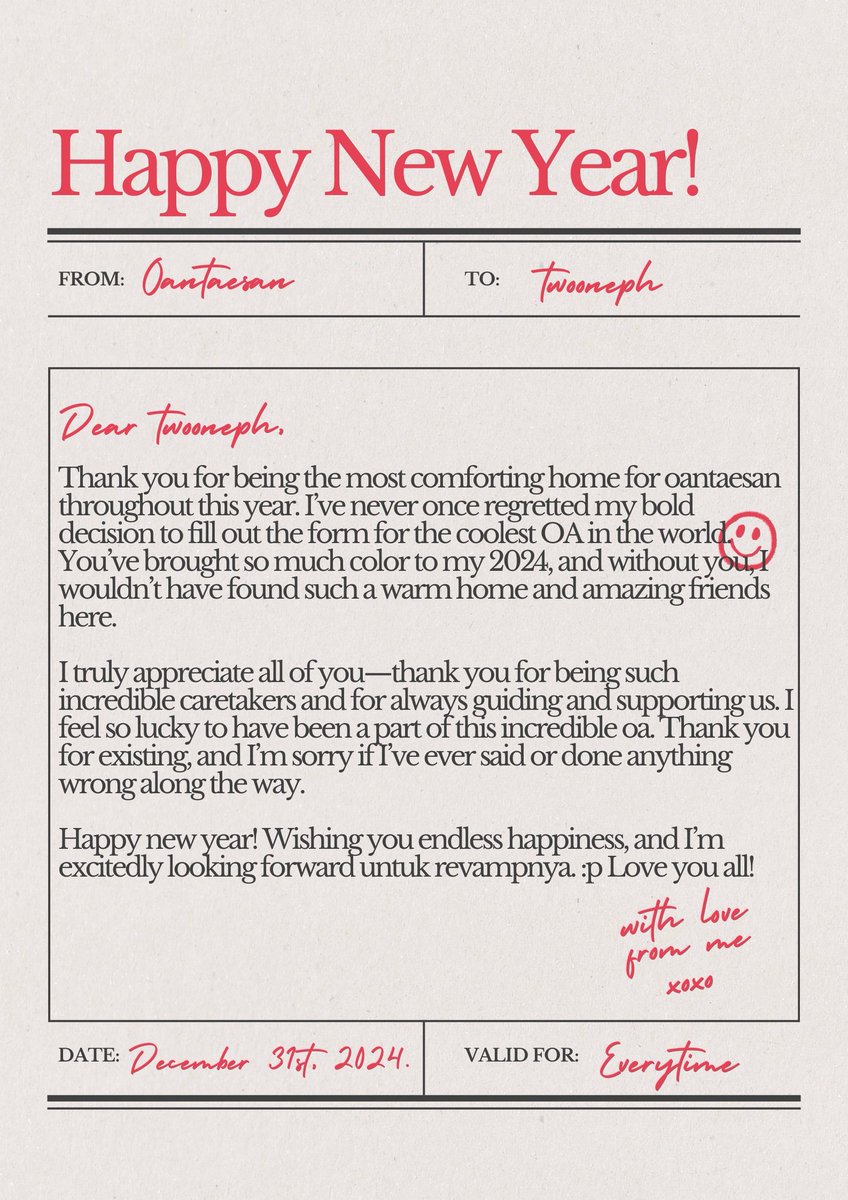 Happy New Year!
FROM: Oantaesan
TO: twooneph
Dear twooneph,
Thank you for being the most comforting home for oantaesan
throughout this year. I’ve never once regretted my bold
decision to fill out the form for the coolest OA in the world.
You’ve brought so much color to my 2024, and without you, I
wouldn’t have found such a warm home and amazing friends
here.
I truly appreciate all of you—thank you for being such
incredible caretakers and for always guiding and supporting us. I
feel so lucky to have been a part of this incredible oa. Thank you
for existing, and I’m sorry if I’ve ever said or done anything
wrong along the way.
Happy new year! Wishing you endless happiness, and I’m
excitedly looking forward untuk revampnya. :p Love you all!
with love
from me
xoxo
DATE: December 31st, 2024.
VALID FOR: Everytime